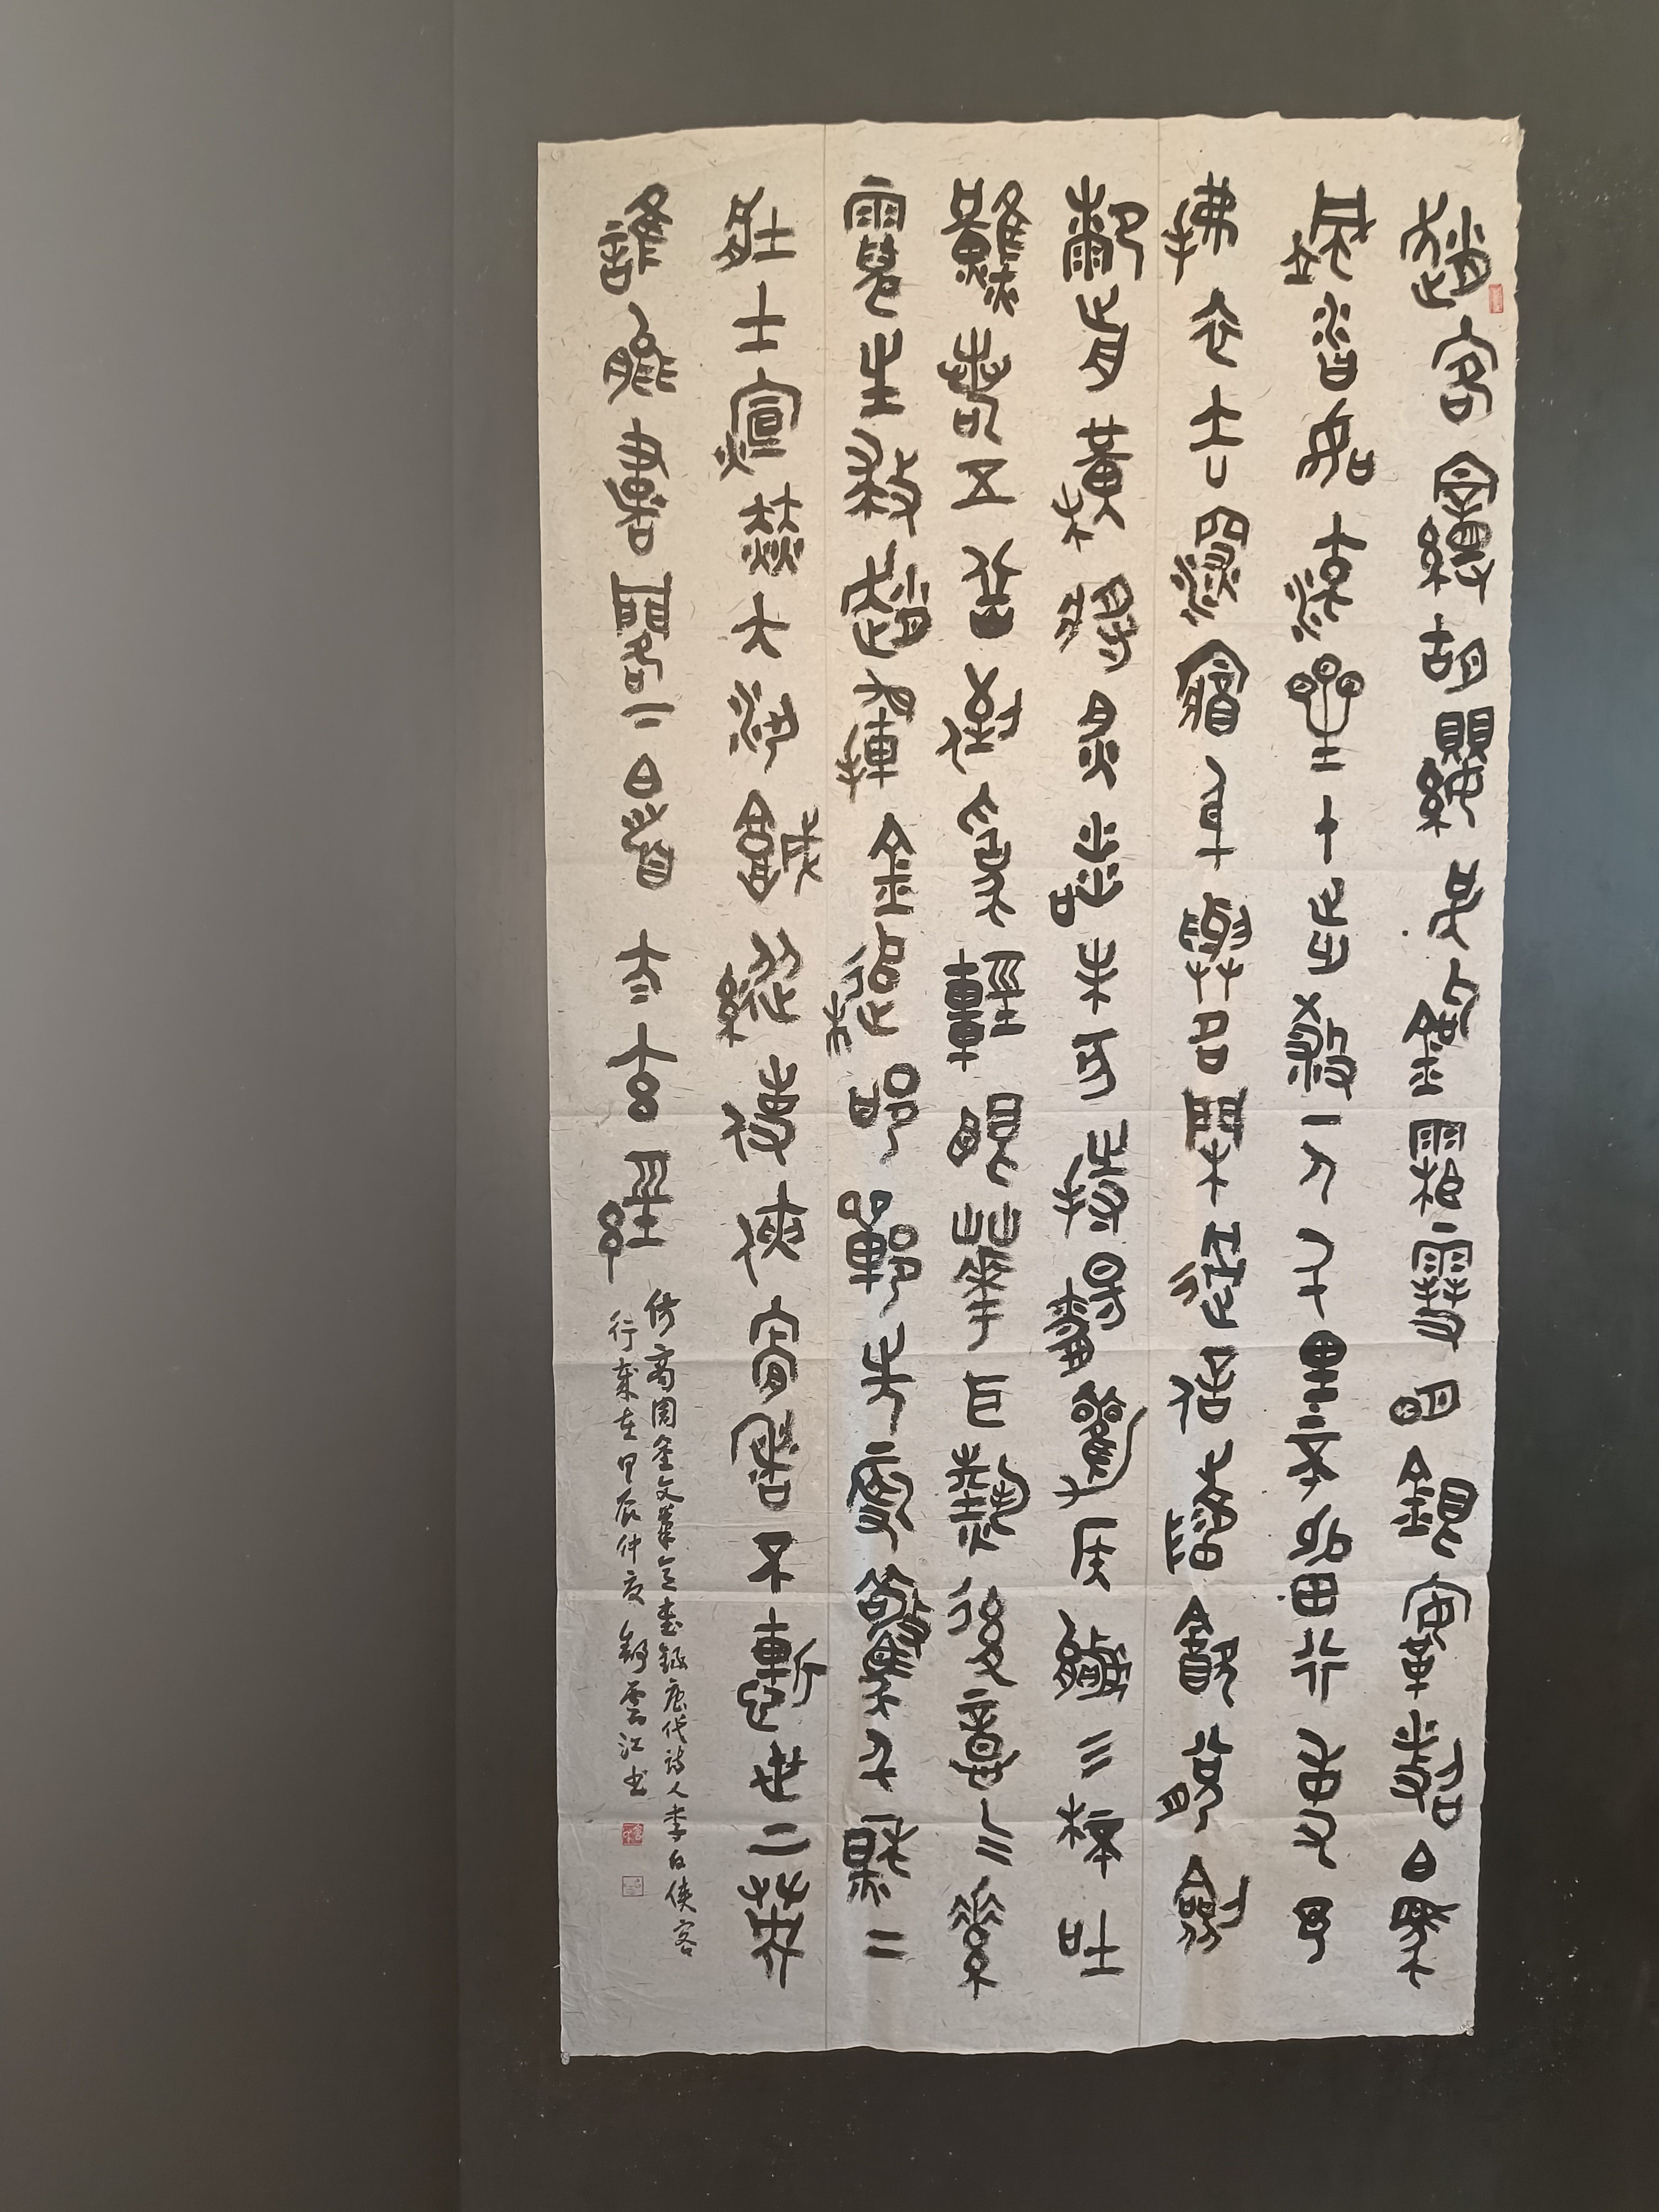 趙客縵胡纓吳鉤霜雪明銀鞍照白馬
颯沓如流星十步殺一人千里不留行事了
拂衣去深藏身與名閒過信陵飲脫劍
膝前橫將炙啖朱亥持觴勸侯嬴三杯吐
然諾五嶽倒為輕眼花耳熱後意氣素
霓生救趙揮金槌邯鄲先震驚千秋二
壯士烜赫大梁城縱死俠骨香不慚世上英
誰能書閣下白首太玄經
仿商周金文筆意書錄唐代詩人李白俠客
行歲在甲辰仲夏雲江书